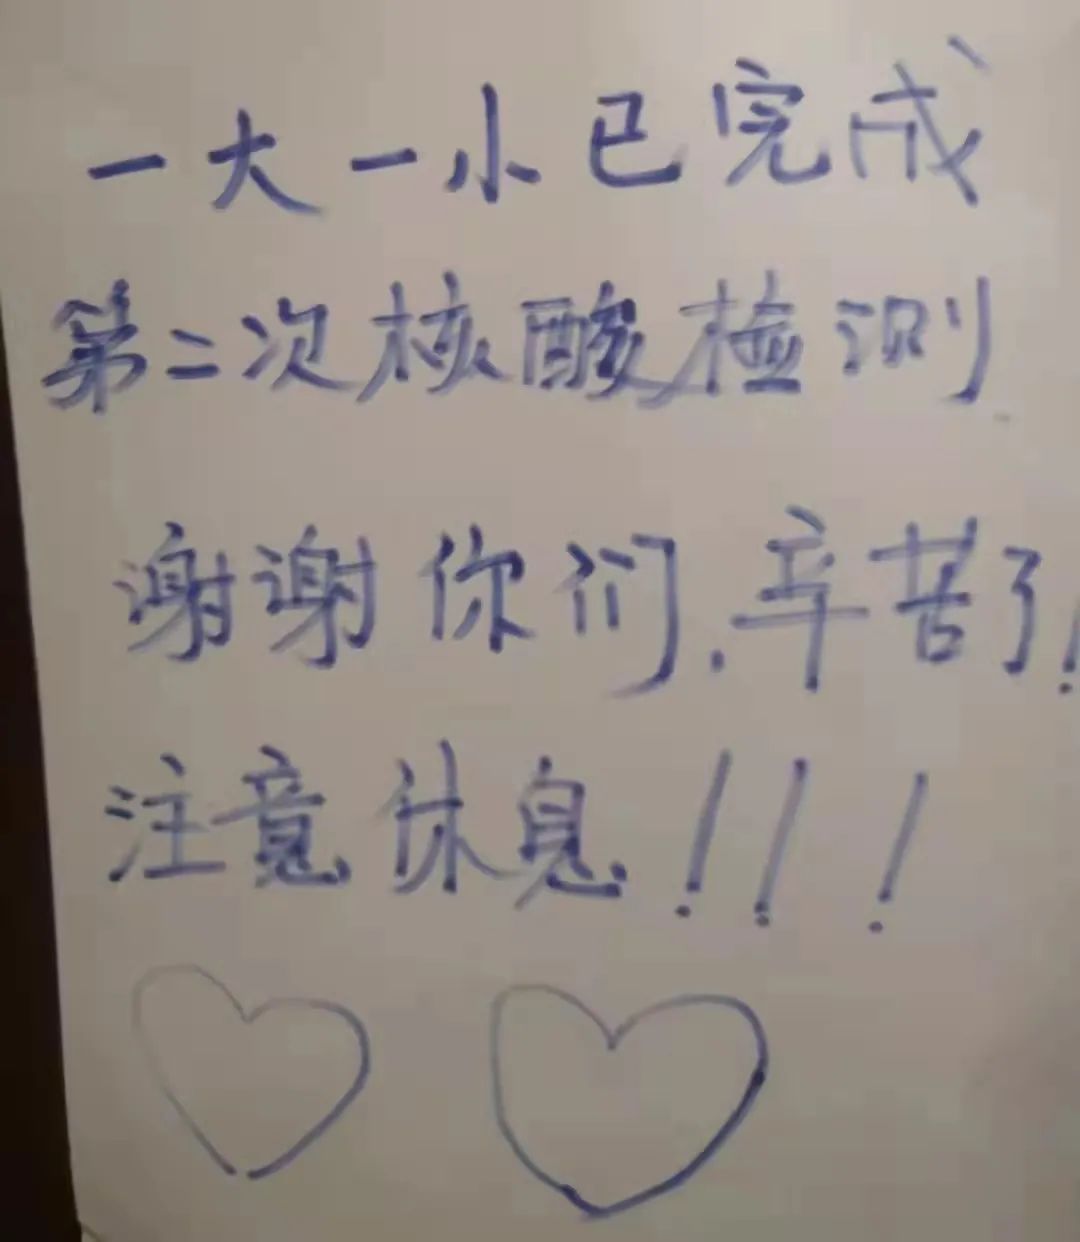 一大一小已完成
第二次核酸检测
谢谢你们.辛苦了!
注意休息!!!